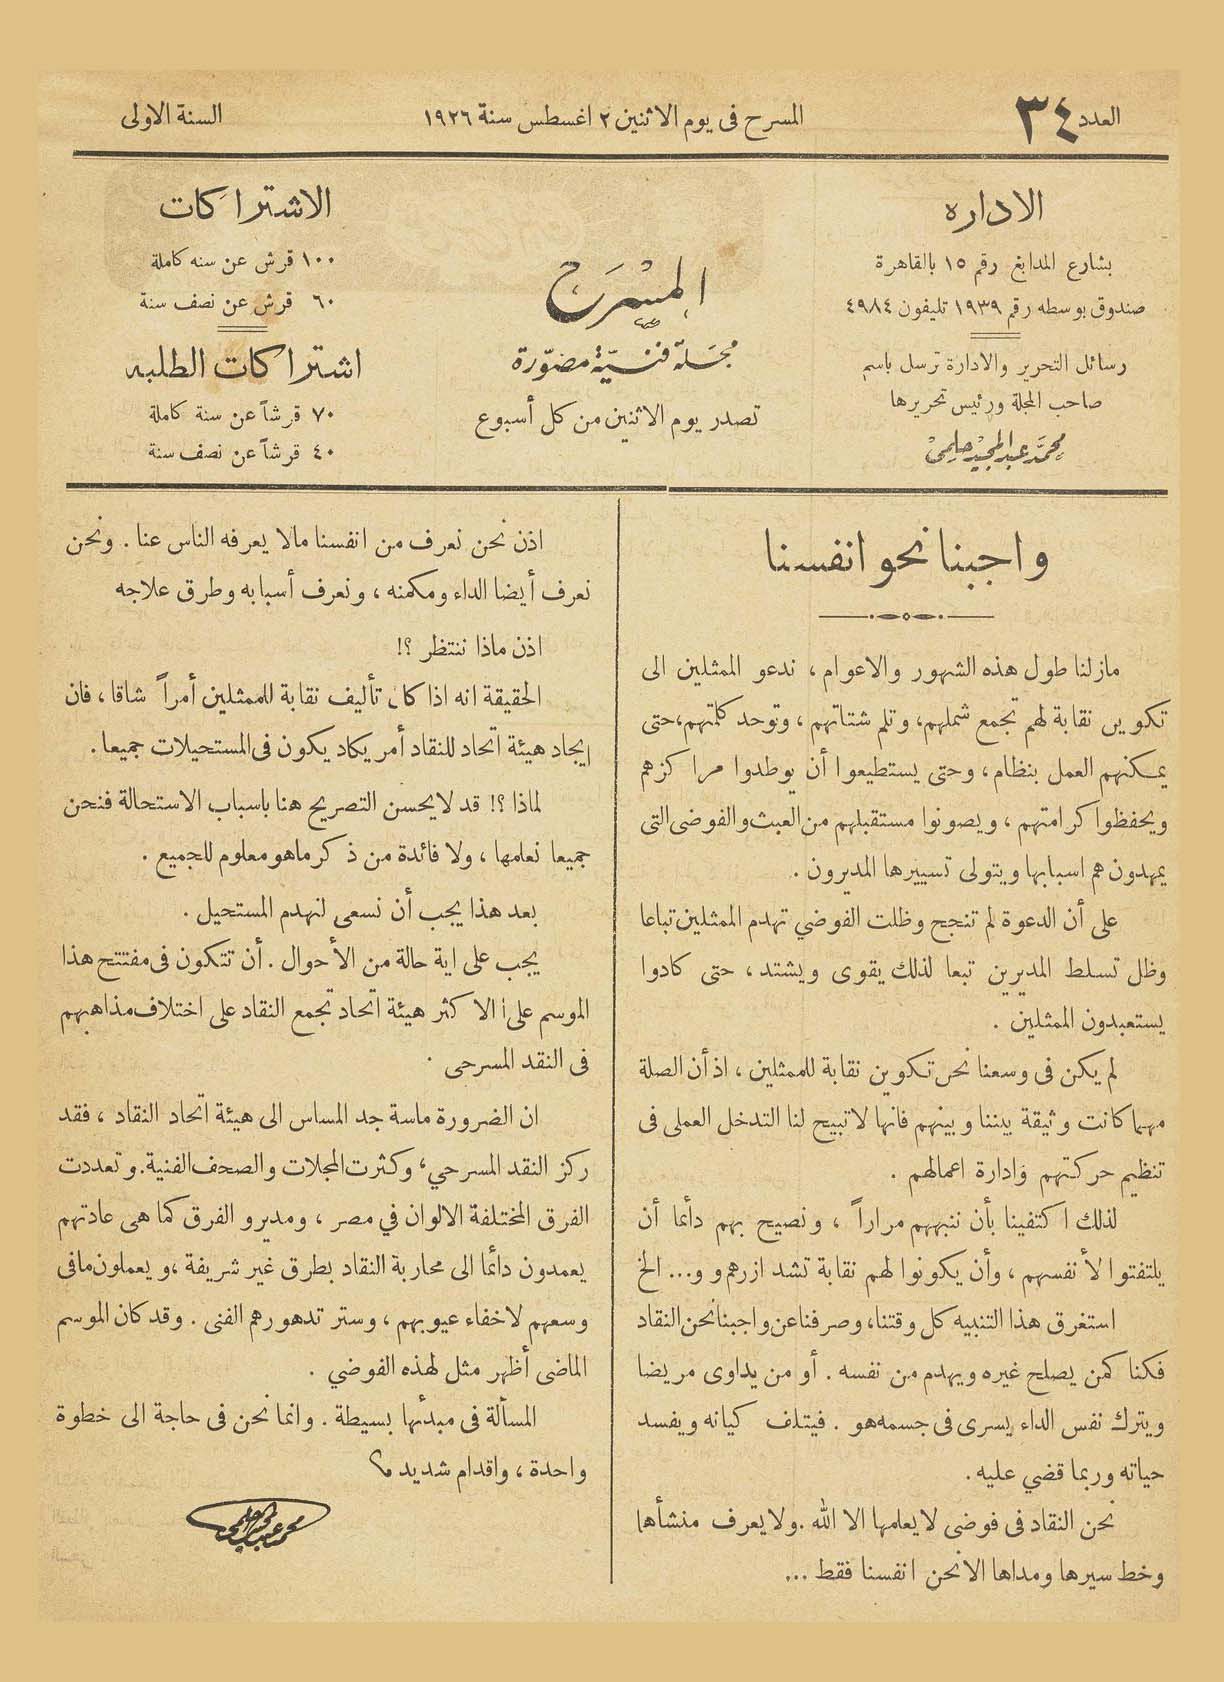 العدد ٣٤
المسرح فى يوم الاثنين ٢ اغسطس سنة ١٩٢٦
السنة الاولى
الاداره
بشارع المدابغ رقم ١٥ بالقاهرة
صندوق بوسطه رقم ١٩٣٩ تليفون ٤٩٨٤
رسائل التحرير والادارة ترسل باسم
صاحب المجلة ورئيس تحريرها
محمد عبد المجيد حلمى
المسرح
مجلة فنية مصورة
تصدر يوم الاثنين من كل أسبوع
الاشتراكات
١٠٠ قرش عن سنه كاملة
٦٠ قرش عن نصف سنة
اشتراكات الطلبه
٧٠ قرشاً عن سنة كاملة
٤٠ قرشاً عن نصف سنة
واجبنا نحو انفسنا
مازلنا طول هذه الشهور والاعوام ، ندعو الممثلين الى
تكوين نقابة لهم تجمع شملهم، وتلم شتاتهم ، وتوحد كلمتهم،حتى
يمكنهم العمل بنظام ، وحتى يستطيعوا أن يوطدوا مراكزهم
ويحفظوا كرامتهم ، ويصونوا مستقبلهم من العبث والفوضى التى
يمهدون هم اسبابها ويتولى تسييرها المديرون .
على أن الدعوة لم تنجح وظلت الفوضي تهدم الممثلين تباعا
وظل تسلط المديرين تبعا لذلك يقوى ويشتد ، حتى كادوا
يستعبدون الممثلين .
لم يكن فى وسعنا نحن تكوين نقابة للممثلين ، اذ أن الصلة
مهما كانت وثيقة بيننا وبينهم فانها لا تبيح لنا التدخل العملى فى
تنظيم حركتهم وادارة اعمالهم .
لذلك اكتفينا بأن ننبههم مراراً ، ونصيح بهم دأئما أن
يلتفتوا لأ نفسهم ، وأن يكونوا لهم نقابة تشد ازرهم و و... الخ
استغرق هذا التنبيه كل وقتنا، وصرفنا عن واجبنا نحن النقاد
فكنا كمن يصلح غيره ويهدم من نفسه . أو من يداوى مريضا
ويترك نفس الداء يسرى فى جسمه هو . فيتلف كيانه ويفسد
حياته وربما قضي عليه .
نحن النقاد فى فوضى لا يعلمها الا الله . ولا يعرف منشأها
وخط سيرها ومداها الا نحن انفسنا فقط ...
اذن نحن نعرف من انفسنا مالا يعرفه الناس عنا . ونحن
نعرف أيضا الداء ومكمنه ، ونعرف أسبابه وطرق علاجه
اذن ماذا ننتظر ؟!
الحقيقة انه اذا كان تأليف نقابة للممثلين أمراً شاقا ، فان
ايجاد هيئة اتحاد للنقاد أمر يكاد يكون فى المستحيلات جميعا .
لماذا ؟! قد لا يحسن التصريح هنا باسباب الاستحالة فنحن
جميعا نعلمها ، ولا فائدة من ذكر ماهو معلوم للجميع .
بعد هذا يجب أن نسعى لنهدم المستحيل .
يجب على اية حالة من الأحوال . أن تتكون فى مفتتح هذا
الموسم على الاكثر هيئة اتحاد تجمع النقاد على اختلاف مذاهبهم
فى النقد المسرحى .
ان الضرورة ماسة جد المساس الى هيئة اتحاد النقاد ، فقد
ركز النقد المسرحي، وكثرت المجلات والصحف الفنية. وتعددت
الفرق المختلفة الالوان في مصر ، ومديرو الفرق كما هى عادتهم
يعمدون دائما الى محاربة النقاد بطرق غير شريفة ، ويعملون مافى
وسعهم لاخفاء عيوبهم ، وستر تدهورهم الفنى . وقد كان الموسم
الماضى أظهر مثل لهذه الفوضي .
المسألة فى مبدئها بسيطة . وانما نحن فى حاجة الى خطوة
واحدة ، واقدام شديد
محمد عبد المجيد حلمى